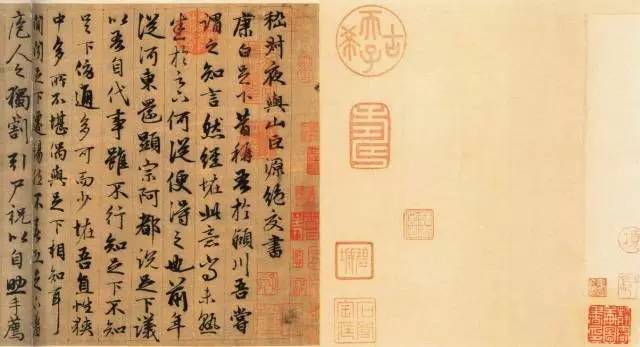 嵇叔夜與山巨源絕交書
康白足下昔稱吾於潁川吾嘗
謂之知言然經怪此意尚未熟
悉於足下何從便得之也前年
從河東還顯宗阿都說足下議
以吾自代事雖不行知足下不知
足下傍通多可而少怪吾直性狹
中多所不堪偶與足下相知耳
間聞足下遷惕然不喜恐足下羞
庖人之獨割引尸祝以自助手薦
古希天子